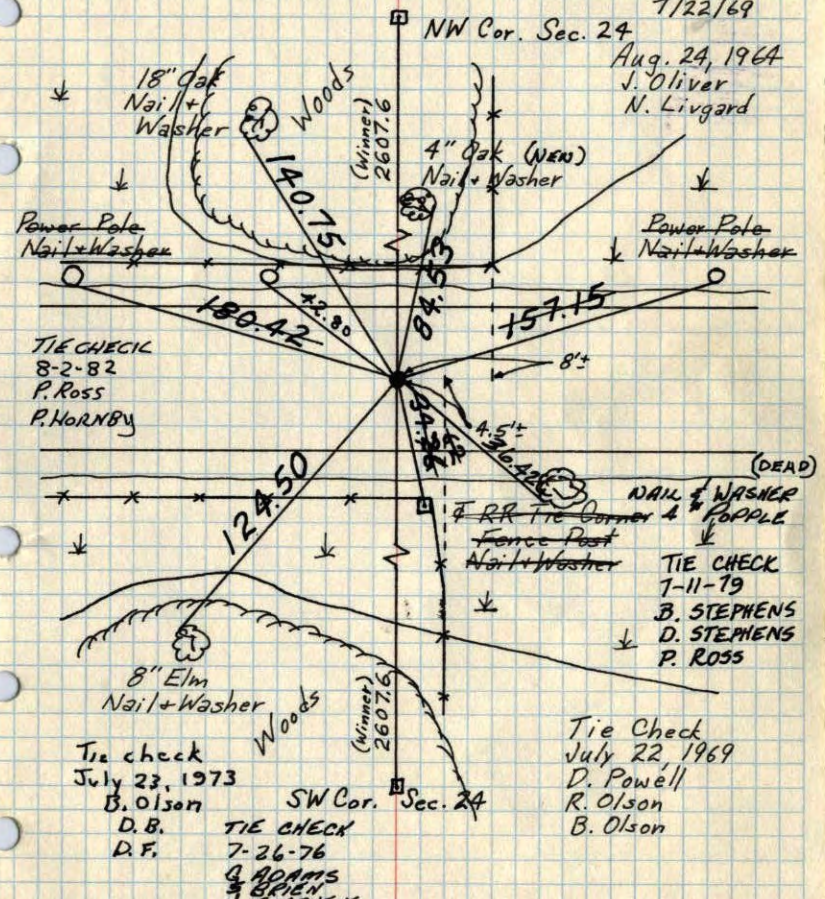 7/22/69
NW Cor. Sec. 24
Aug. 24, 1964
J. Oliver
N. Livgard
18" Oak
Nail +
Washer
Woods
(Winner)
2607.6
4" Oak (NEW)
Nail + Washer
140.75
84.53
Power Pole
Nail + Washer
Power Pole
Nail + Washer
180.42
42.80
157.15
8'±
TIE CHECK
8-2-82
P. ROSS
P. HORNBY
4.5'±
36.42
124.50
(DEAD)
NAIL & WASHER
4" POPPLE
℄ RR Tie Corner
Fence Post
Nail + Washer
TIE CHECK
7-11-79
B. STEPHENS
D. STEPHENS
P. ROSS
8" Elm
Nail + Washer
Woods
(Winner)
2607.6
Tie check
July 23, 1973
B. Olson
D.B.
D.F.
SW Cor. Sec. 24
TIE CHECK
7-26-76
G ADAMS
S BRIEN
Tie Check
July 22, 1969
D. Powell
R. Olson
B. Olson